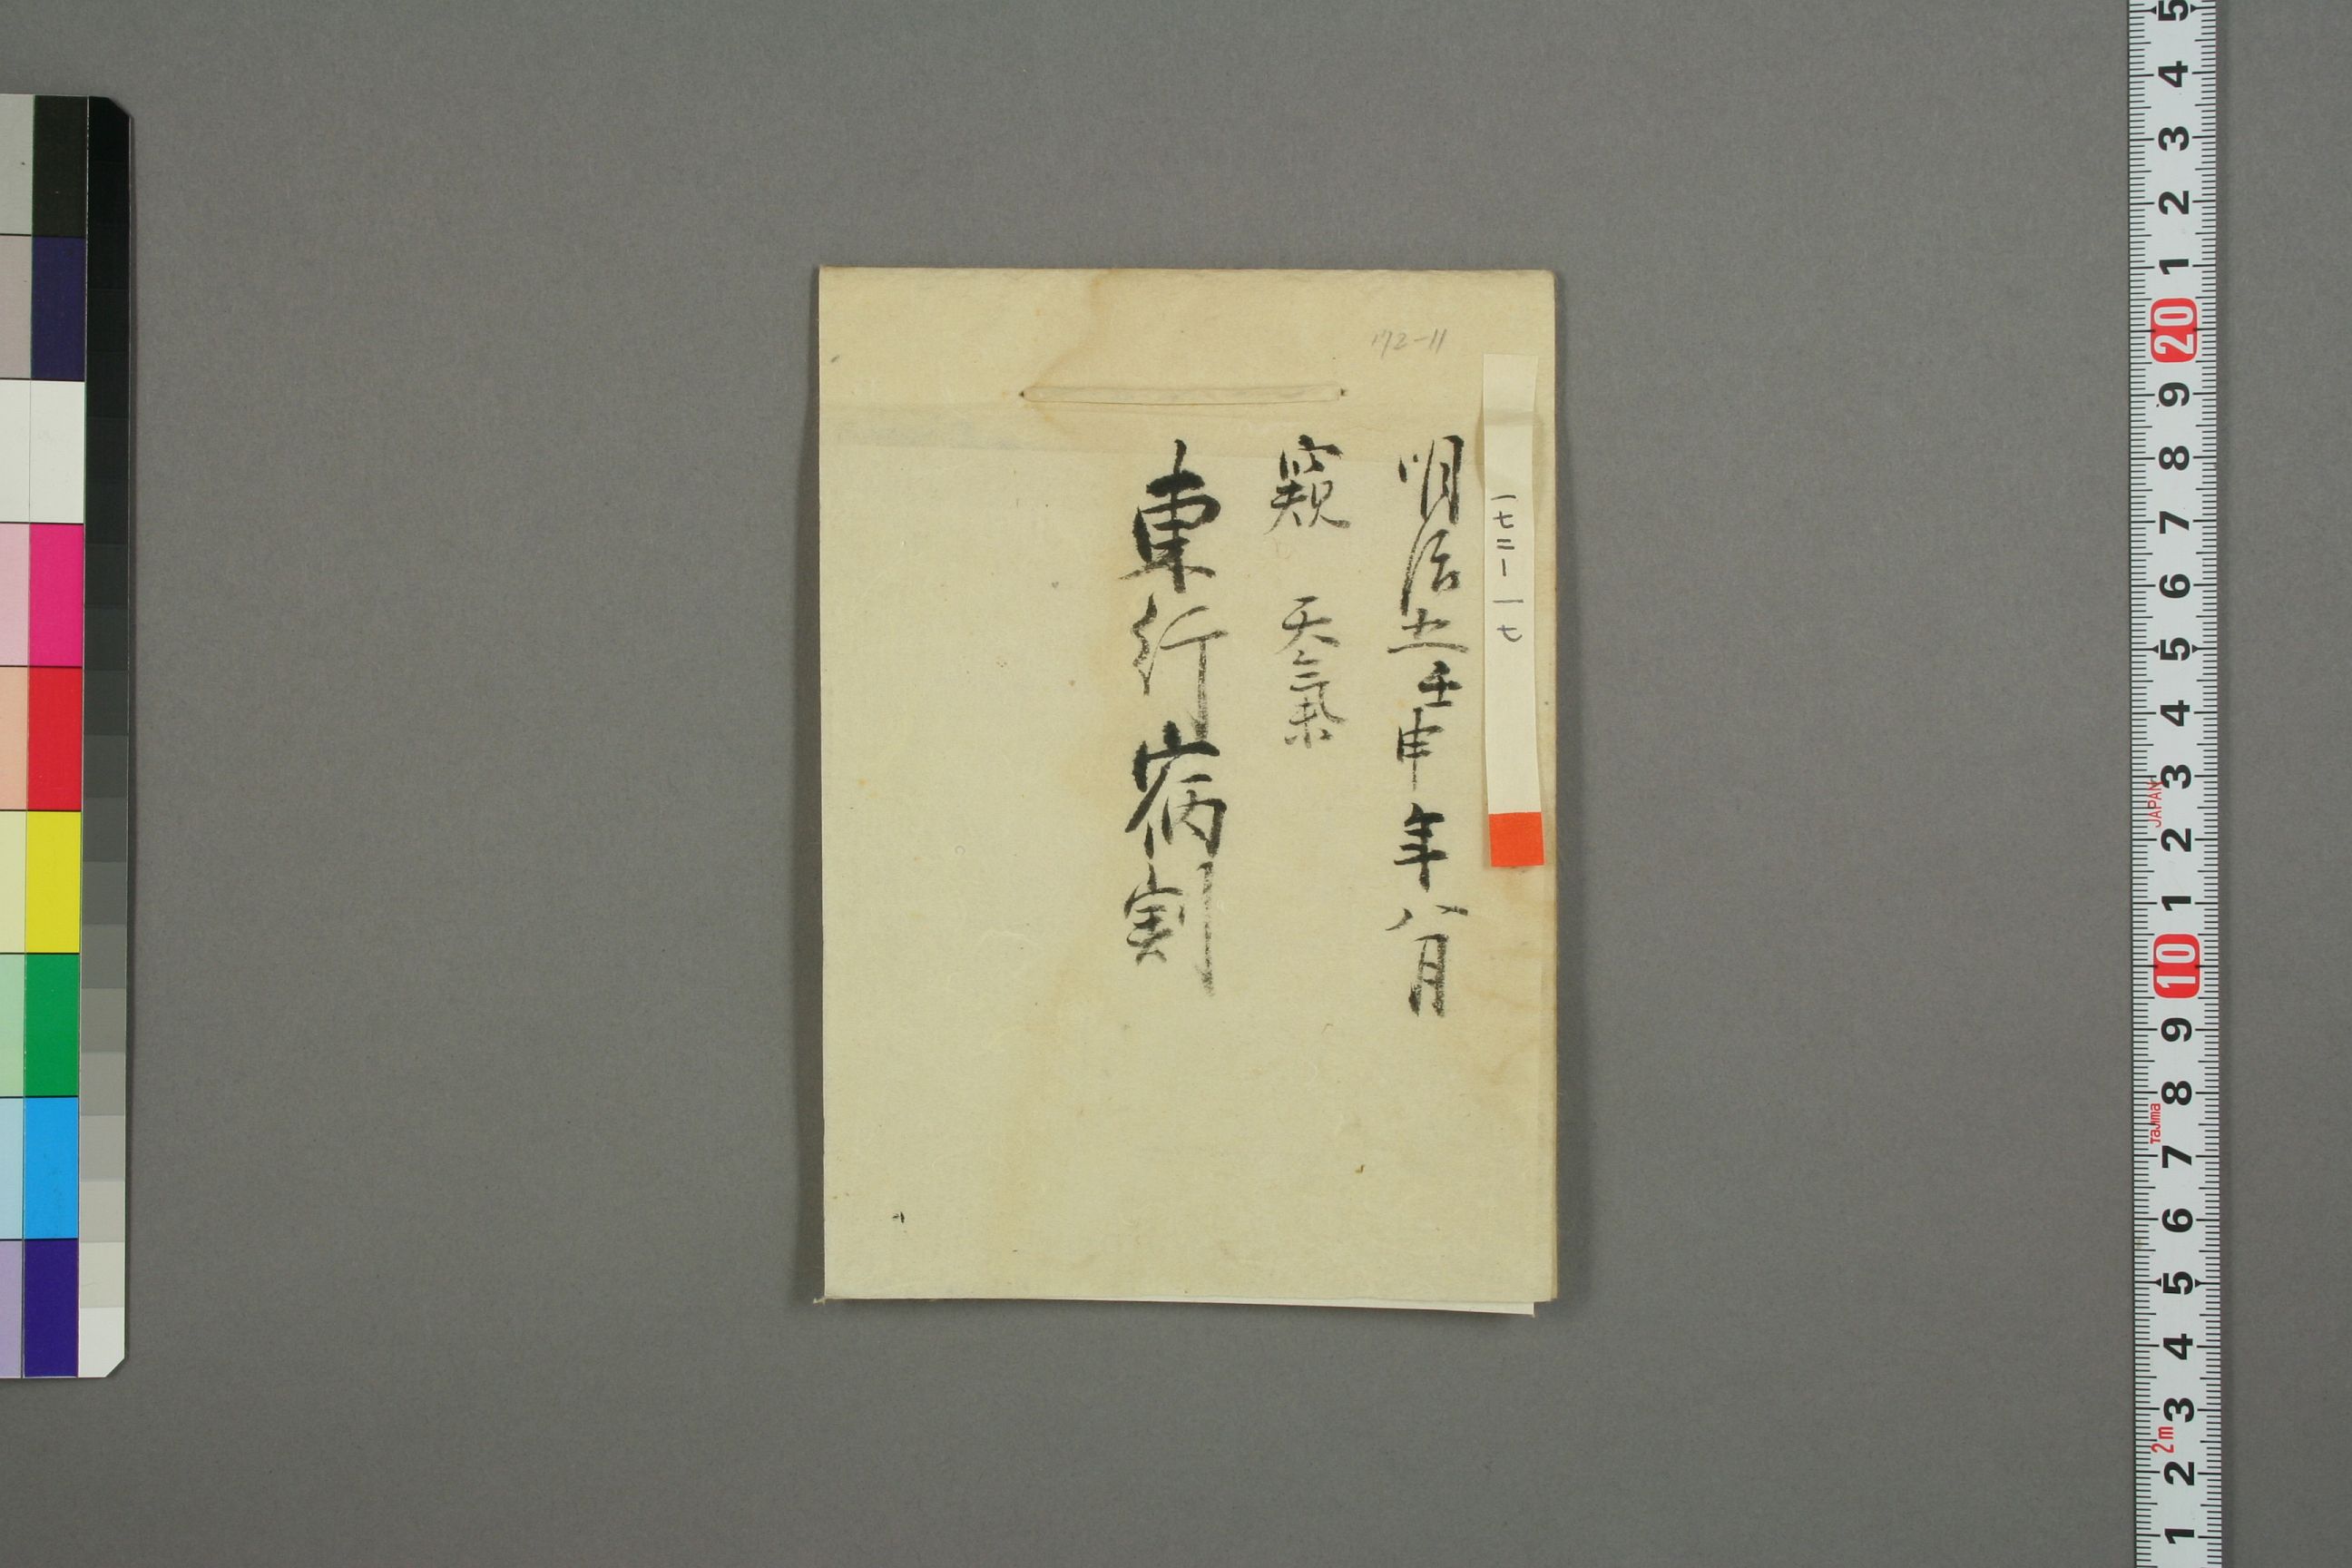 172-11
一七二-一七
明治五壬申年八月
窺 天氣
東行宿割
5
4
3
2
1
20
9
8
7
6
5
4
3
2
1
10
9
8
7
6
5
4
3
2
1
JAPAN
Tajima
2m